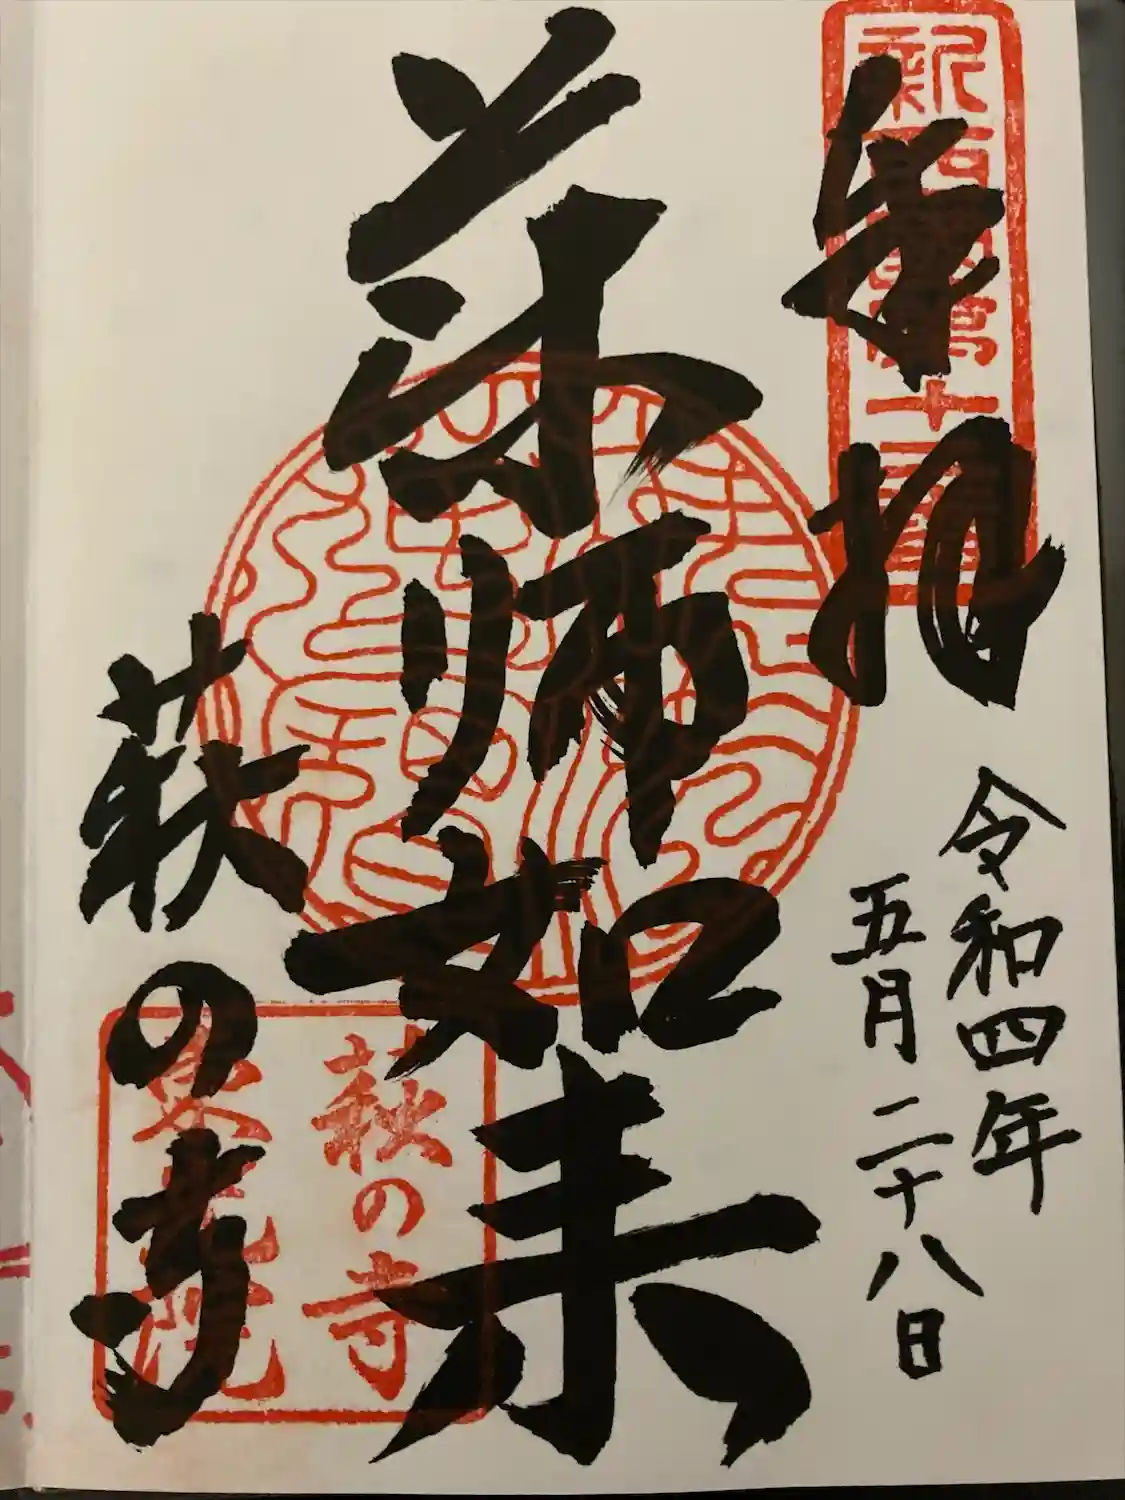 奉拝
令和四年
五月二十八日
薬師如来
萩の寺
新西国第十二番
萩の寺
東光院